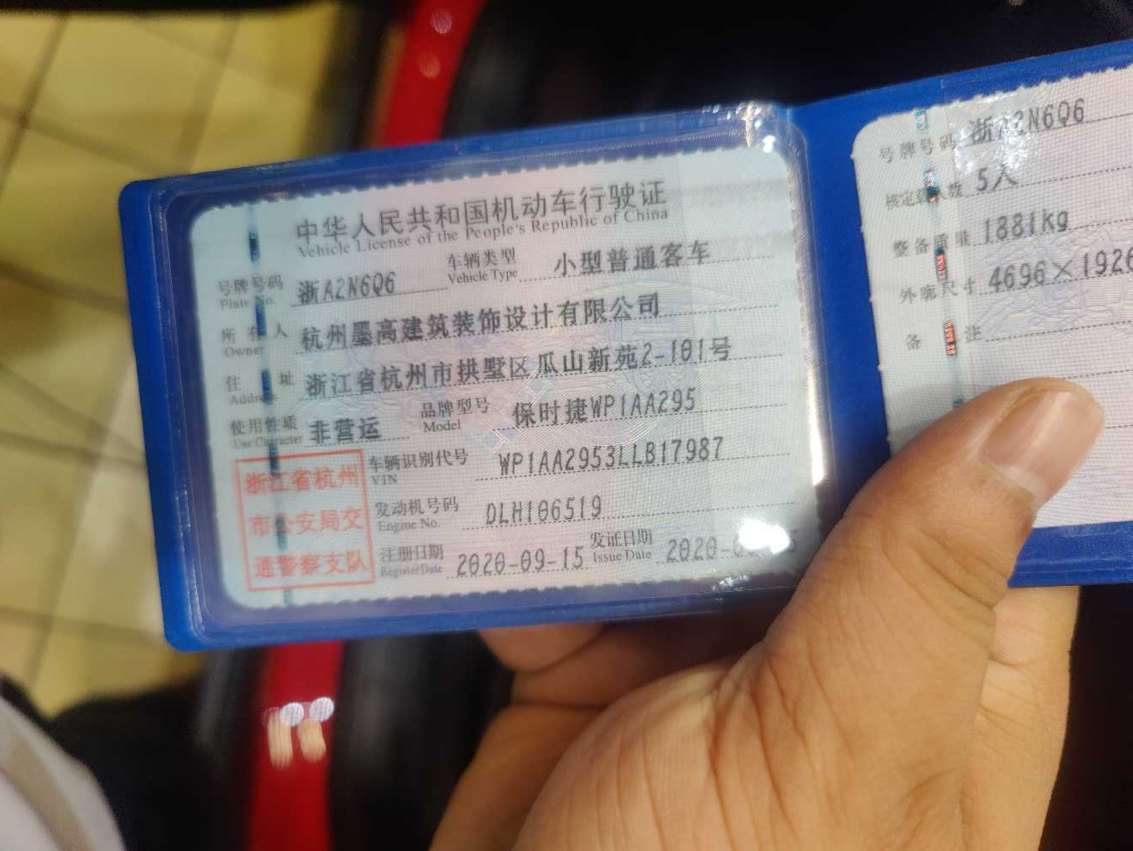 中华人民共和国机动车行驶证
Vehicle License of the People's Republic of China
号牌号码 浙A2N6Q6 车辆类型 小型普通客车
Plate No. Vehicle Type
所有人 杭州墨高建筑装饰设计有限公司
Owner
住址 浙江省杭州市拱墅区瓜山新苑2-101号
Address
使用性质 非营运 品牌型号 保时捷WP1AA295
Use Character Model
浙江省杭州
市公安局交
通警察支队
车辆识别代号 WP1AA2953LLB17987
VIN
发动机号码 DLH106519
Engine No.
注册日期 2020-09-15 发证日期 2020-
Register Date Issue Date
号牌号码 浙A2N6Q6
核定载人数 5人
整备质量 1881kg
外廓尺寸 4696×1926
备注